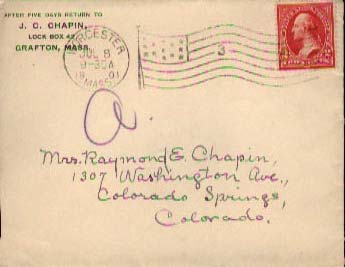 AFTER FIVE DAYS RETURN TO
J. C. CHAPIN,
LOCK BOX 42,
GRAFTON, MASS.
WORCESTER
JUL 8
9-30A
1901
MASS.
3
a.
Mrs. Raymond E. Chapin,
1307 Washington Ave.,
Colorado Springs,
Colorado.